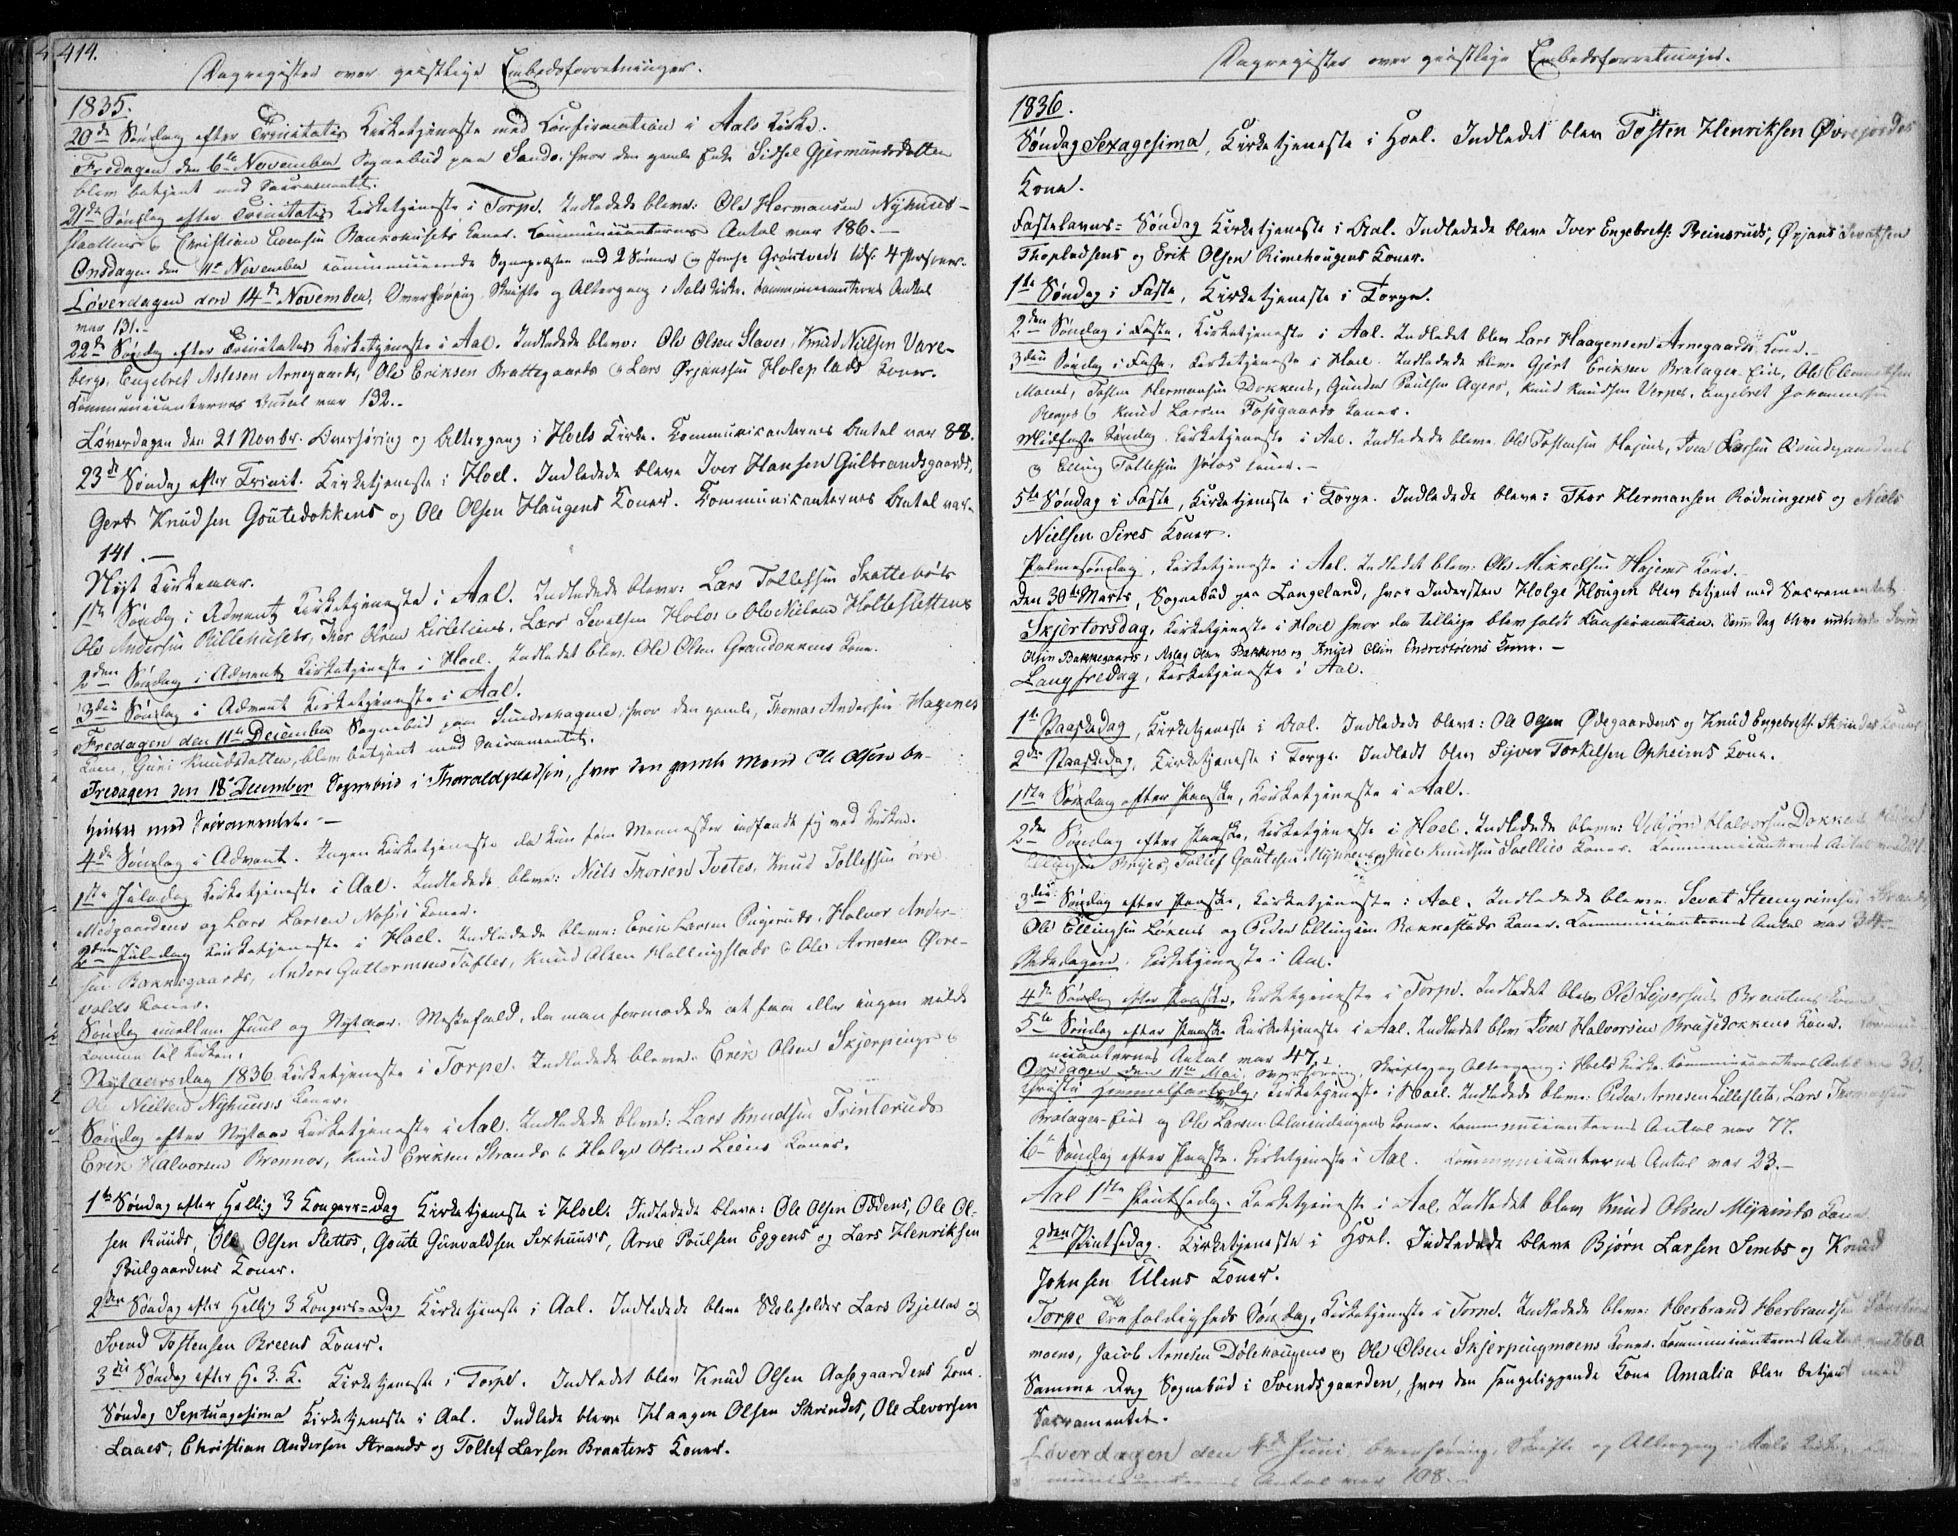 414.
Dagregister over geistlige Embedsforretninger.
1835.
20de Søndag efter Trinitatis Kirketjeneste med Confirmation i Aals Kirke.
Fredagen den 6te November Sognebud paa Sando, hvor den gamle Enke Sidsel Gjermundsdatter
blev betjent med Sacramentet.
21de Søndag efter Trinitatis Kirketjeneste i Torpe. Indledede bleve: Ole Hermansen Nyhuus-
Christian Svensen Koner. Communicanternes Antal var 186.-
Onsdagen den 11te November communicerede Sognepræsten med 2 Sønner og 4 Personer.
Løverdagen den 14de November, Overhøring, Skrifte og Altergang i Aals Kirke. Communicanternes Antal
var 131.-
22de Søndag efter Trinitatis Kirketjeneste i Aal. Indledede bleve: Ole Olsen Slaves, Knud Nielsen Vare-
bergs, Engebret Aslesen Arnegaards, Ole Eriksen Brattegaards og Lars Ørjanssen Holeplads Koner.
Communicanternes Antal var 192.-
Løverdagen den 21 Novbr. Overhøring og Altergang i Hoels Kirke. Kommunikanternes Antal var 88.
23de Søndag efter Trinit. Kirketjeneste i Hoel. Indledede bleve Iver Hansen Gulbrandsgaards,
Gert Knudsen Goutedokkens og Ole Olsen Haugens Koner. Kommunikanternes Antal var
141.-
Nyt Kirkeaar.
1ste Søndag i Advent Kirketjeneste i Aal. Indledede bleve: Lars Tollefsen Skattebøls
Ole Andersen Pillehusets, Thor Olsen Lislelines, Lars Sevatsen Holos og Ole Nielsen Holtesletten
2den Søndag i Advent Kirketjeneste i Hoel. Indledet blev Ole Olsen Grandokkens Kone.
3die Søndag i Advent Kirketjeneste i Aal.
Fredagen den 11te December Sognebud paa Sundrehagene, hvor den gamle Thomas Andersen Hagenes
Kone, Guri Knudsdatter, blev betjent med Sacramentet.
Fredagen den 18de December Sognebud i Thoraldpladsen, hvor den gamle Mand Ole Olsen be-
tjentes med Sacramentet.-
4de Søndag i Advent. Ingen Kirketjeneste da kun fem Mennesker indfandt sig ved Kirken.
1ste Juledag Kirketjeneste i Aal. Indledede bleve: Niels Thorsen Tvetes, Knud Tollefsen øvre
Medgaardens og Lars Larsen Noss's Koner.
2den Juledag Kirketjeneste i Hoel. Indledede bleve: Erik Larsen Rugeruds, Halvor Ander-
sen Bakkegaards, Anders Guttormsen Tufles, Knud Olsen Hallingstads og Ole Arnesen Øvre-
volds Koner.
Søndag mellem Juul og Nytaar. Messefald, da man formodede at faa eller ingen vilde
komme til Kirken.
Nytaarsdag 1836 Kirketjeneste i Torpe. Indledede bleve: Erik Olsen Skjerpings og
Ole Nielsen Nyhuuses Koner.
Søndag efter Nytaar Kirketjeneste i Aal. Indledede bleve: Lars Knudsen Trinteruds
Erik Halvorsen Brennos, Knud Eriksen Strands og Helge Olsen Leens Koner.
1ste Søndag efter Hellig 3 Kongers=Dag Kirketjeneste i Hoel. Indledede bleve: Ole Olsen Oddens, Ole Ol-
sen Ruuds, Ole Olsen Slettos, Goute Gunvaldsen Sexhuus's, Arne Poulsen Eggens og Lars Henriksen
Poulgaardens Koner.
2den Søndag efter Hellig 3 Kongers=Dag Kirketjeneste i Aal. Indledede bleve Skoleholder Lars Bjellas og
Svend Tostensen Breens Koner.
3die Søndag efter H. 3. K. Kirketjeneste i Torpe. Indledet blev Knud Olsen Aasegaardens Kone.
Søndag Septuagesima Kirketjeneste i Aal. Indlede bleve Haagen Olsen Skrindes, Ole Levorsen
Laaes, Christian Andersen Strands og Tollef Larsen Braatens Koner.
Dagregister over geistlige Embedsforretninger.
1836.
Søndag Sexagesima, Kirketjeneste i Hoel. Indledet blev Tosten Henriksen Øvrejordes
Kone.
Fastelavns=Søndag Kirketjeneste i Aal. Indledede bleve Iver Engebrets. Breinsruds, Ørjans Sevatsen
Thopladsens og Erik Olsen Rimehougens Koner.
1ste Søndag i Faste, Kirketjeneste i Torpe.
2den Søndag i Faste, Kirketjeneste i Aal. Indledet blev Lars Haagensen Arnegaards Kone.-
3die Søndag i Faste, Kirketjeneste i Hoel. Indledede bleve Gjert Eriksen Bratager-Eie, Ole Clementsen
Moens, Tosten Hermansen Dokkens, Gunder Paulsen Agers, Knud Knudsen Verpes, Engebret Johannesen
og Knud Larsen Fossgaards Koner.
Midfaste Søndag Kirketjeneste i Aal. Indledede bleve Ole Tostensen Hajems, Iver Larsen Qvindegaardens
og Elling Tollefsen Koner.-
5te Søndag i Faste, Kirketjeneste i Torpe. Indledede bleve: Thor Hermansen Rødningens og Niels
Nielsen Sires Koner.
Palmesøndag, Kirketjeneste i Aal. Indledet blev: Ole Mikkelsen Hajems Kone.-
Den 30te Marts, Sognebud paa Langeland, hvor Indersten Holge Hougen blev betjent med Sacramentet
Skjertorsdag, Kirketjeneste i Hoel hvor da tillige blev holdt Confirmation. Samme Dag bleve indledede
Olsen Bakkegaards, Aslag Olsen Bakkens og Knud Olsen Endrestølens Koner.-
Langfredag, Kirketjeneste i Aal.
1ste Paaskedag, Kirketjeneste i Aal. Indledede bleve: Ole Olsen Ødegaardens og Knud Engebrets. Skrindes Koner.
2den Paaskedag, Kirketjeneste i Torpe. Indledt blev Sjver Torkelsen Opheims Kone.
1ste Søndag efter Paaske, Kirketjeneste i Aal.
2den Søndag efter Paaske, Kirketjeneste i Hoel. Indledede bleve: Vebjørn Halvorsen Dokken
Ellingsen Tollef Goutesen Myhrens og Knudsen Koner. Communicanternes Antal var
3die Søndag efter Paaske, Kirketjeneste i Aal. Indledede bleve Sevat Steengrimsen Strands
Ole Ellingsen Løkens og Peder Ellingsen Rokkestads Koner. Communicanternes Antal var 34.-
Bededagen. Kirketjeneste i Aal.
4de Søndag efter Paaske, Kirketjeneste i Torpe. Indledet blev Ole Siversens Braatens Kone
5te Søndag efter Paaske Kirketjeneste i Aal. Indledet blev Iver Halvorsen Brusedokkens Kone. Commu-
nicanternes Antal var 47.-
Onsdagen den 11te Mai, Overhøring, Skrifte og Altergang i Hoels Kirke. Communicanternes Antal var 30.
Christi Himmelfartsdag, Kirketjeneste i Hoel. Indledede bleve: Peder Arnesen Lilleslets, Lars Thomassen
Bratager-Eies og Ole Larsen Almindingens Koner. Communicanternes Antal var 77.
6te Søndag efter Paaske. Kirketjeneste i Aal. Communicanternes Antal var 23.-
Aal 1ste Pintsedag. Kirketjeneste i Aal. Indledet blev Knud Olsen Myruds Kone
2den Pintsedag. Kirketjeneste i Hoel. Indledede bleve Bjørn Larsen Sembs og Knud
Johnsen Ulens Koner.
Torpe Trefoldigheds Søndag, Kirketjeneste i Torpe. Indledede bleve: Herbrand Herbrandsen
moens, Jacob Arnesen Dølehougens og Ole Olsen Skjerpingmoens Koner. Communicanternes Antal var 260
Samme Dag Sognebud i Svendsgaarden, hvor den sengeliggende Kone Amalia blev betjent med
Sacramentet.
Løverdagen den 4de Juni Overhøring, Skrifte og Altergang i Aals Kirke.
municanternes Antal var 108.-